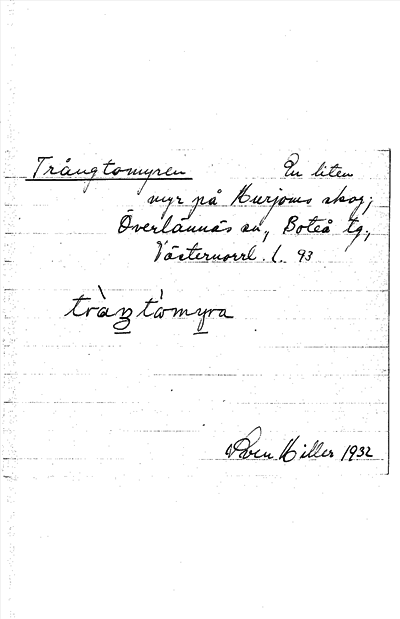 Trångtomyren En liten
myr på Kurjoms skog;
Överlännäs sn, Boteå tg,
Västernorrl. l. 93
tràŋ tòmyra
Sven Hiller 1932